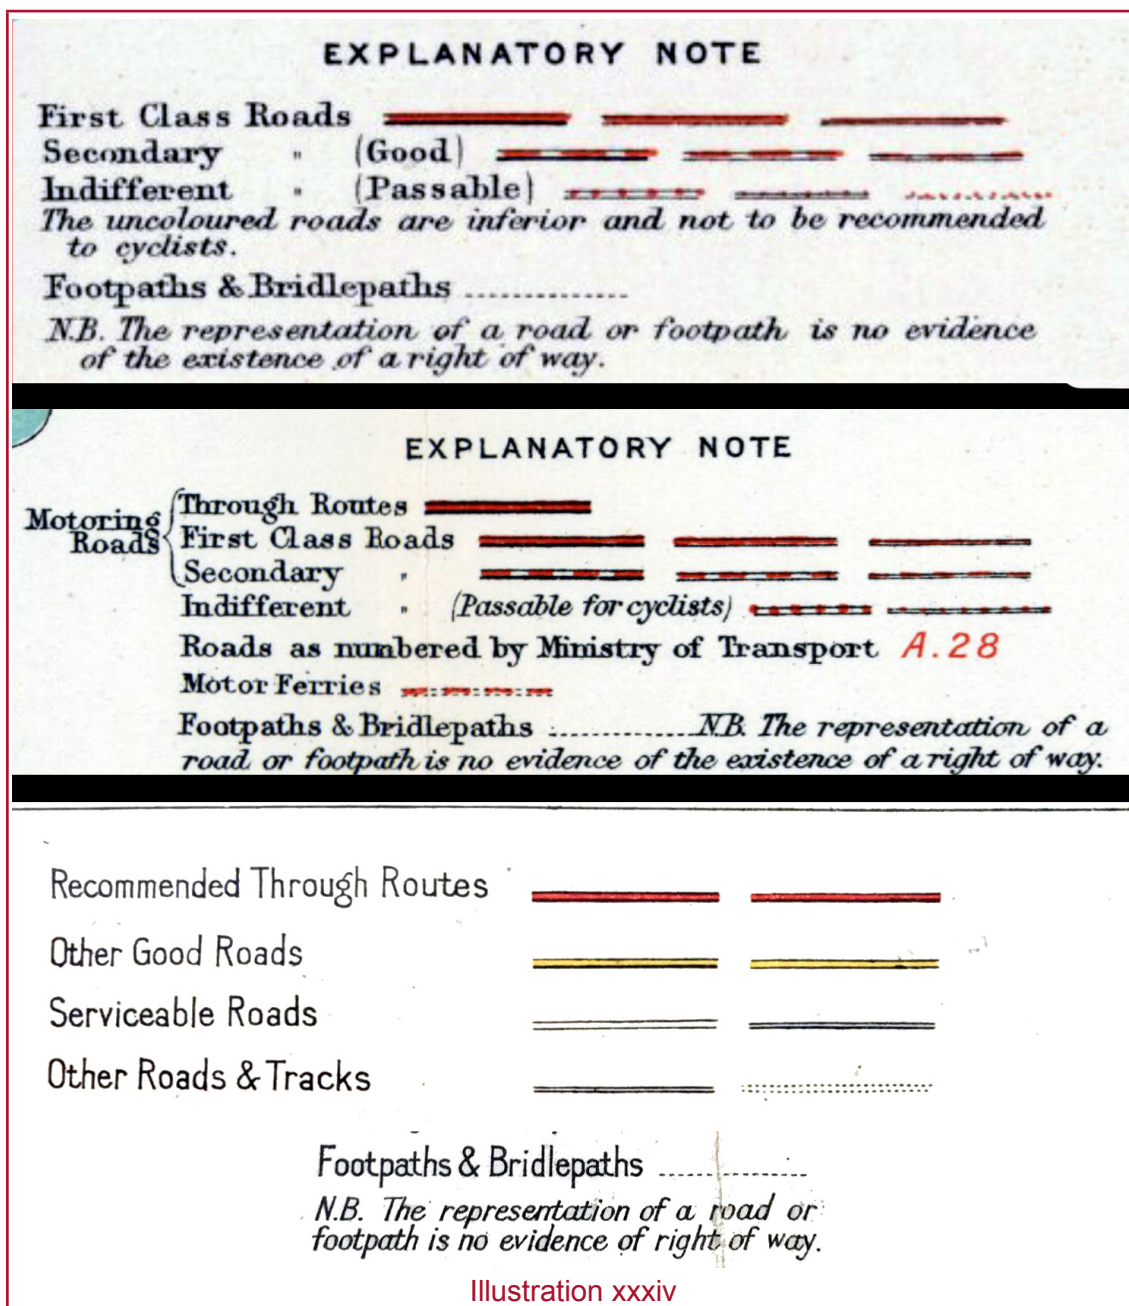 EXPLANATORY NOTE
First Class Roads
Secondary " (Good)
Indifferent " (Passable)
The uncoloured roads are inferior and not to be recommended
to cyclists.
Footpaths & Bridlepaths ...............
N.B. The representation of a road or footpath is no evidence
of the existence of a right of way.
EXPLANATORY NOTE
Motoring Roads
Through Routes
First Class Roads
Secondary "
Indifferent " (Passable for cyclists)
Roads as numbered by Ministry of Transport A.28
Motor Ferries
Footpaths & Bridlepaths ............... N.B. The representation of a
road or footpath is no evidence of the existence of a right of way.
Recommended Through Routes
Other Good Roads
Serviceable Roads
Other Roads & Tracks
Footpaths & Bridlepaths ...............
N.B. The representation of a road or
footpath is no evidence of right of way.
Illustration xxxiv